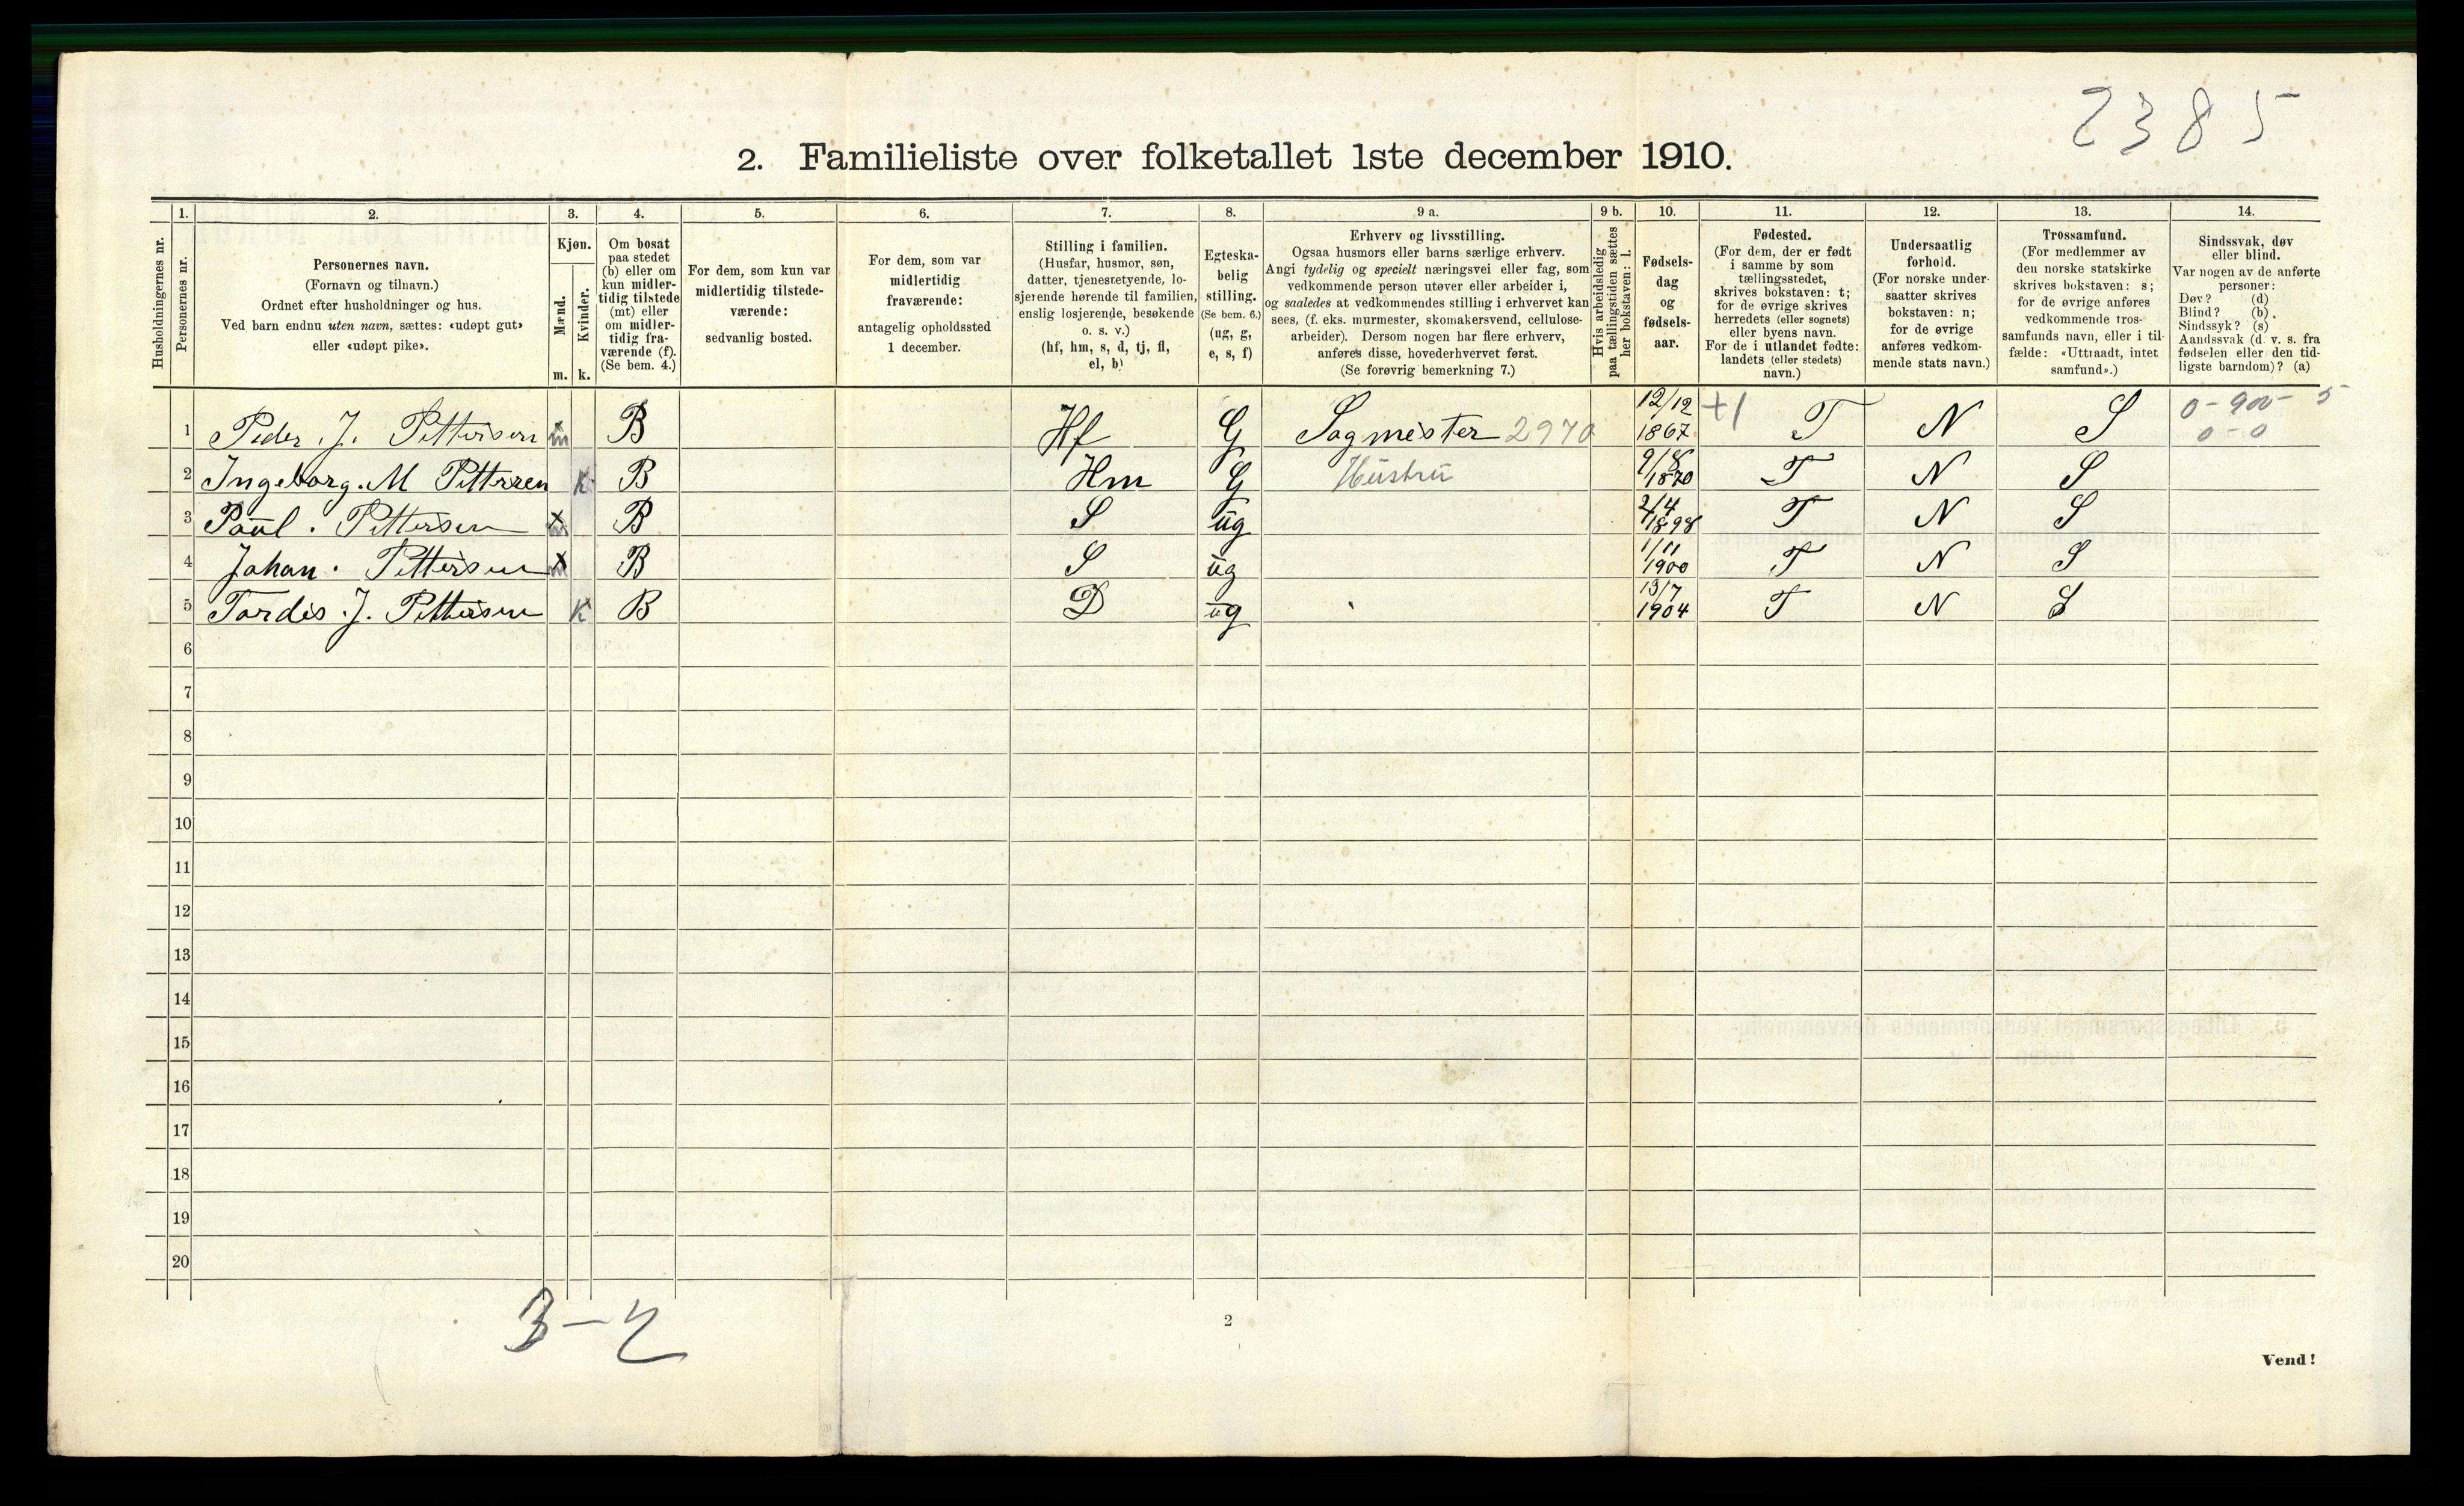 2385
2. Familieliste over folketallet 1ste december 1910.
Husholdningernes nr.
1. Personernes nr.
2. Personernes navn.
(Fornavn og tilnavn.)
Ordnet efter husholdninger og hus.
Ved barn endnu uten navn, sættes: «udøpt gut»
eller «udøpt pike».
3. Kjøn.
Mænd. m.
Kvinder. k.
4. Om bosat
paa stedet
(b) eller om
kun midler-
tidig tilstede
(mt) eller
om midler-
tidig fra-
værende (f).
(Se bem. 4.)
5. For dem, som kun var
midlertidig tilstede-
værende:
sedvanlig bosted.
6. For dem, som var
midlertidig
fraværende:
antagelig opholdssted
1 december.
7. Stilling i familien.
(Husfar, husmor, søn,
datter, tjenestetyende, lo-
sjerende hørende til familien,
enslig losjerende, besøkende
o. s. v.)
(hf, hm, s, d, tj, fl,
el, b)
8. Egteska-
belig
stilling.
(Se bem. 6.)
(ug, g,
e, s, f)
9 a. Erhverv og livsstilling.
Ogsaa husmors eller barns særlige erhverv.
Angi tydelig og specielt næringsvei eller fag, som
vedkommende person utøver eller arbeider i,
og saaledes at vedkommendes stilling i erhvervet kan
sees, (f. eks. murmester, skomakersvend, cellulose-
arbeider). Dersom nogen har flere erhverv,
anføres disse, hovederhvervet først.
(Se forøvrig bemerkning 7.)
9 b. Hvis arbeidsledig
paa tællingstiden sættes
her bokstaven: l.
10. Fødsels-
dag
og
fødsels-
aar.
11. Fødested.
(For dem, der er født
i samme by som
tællingsstedet,
skrives bokstaven: t;
for de øvrige skrives
herredets (eller sognets)
eller byens navn.
For de i utlandet fødte:
landets (eller stedets)
navn.)
12. Undersaatlig
forhold.
(For norske under-
saatter skrives
bokstaven: n;
for de øvrige
anføres vedkom-
mende stats navn.)
13. Trossamfund.
(For medlemmer av
den norske statskirke
skrives bokstaven: s;
for de øvrige anføres
vedkommende tros-
samfunds navn, eller i til-
fælde: «Uttraadt, intet
samfund».)
14. Sindssvak, døv
eller blind.
Var nogen av de anførte
personer:
Døv? (d)
Blind? (b).
Sindssyk? (s)
Aandssvak (d. v. s. fra
fødselen eller den tid-
ligste barndom)? (a)
1 Peder. J. Pettersen m B Hf G Sagmester 2970 12/12 1867 +1 T N S 0-900-5 0-0
2 Ingeborg. M Pettersen K B Hm G Hustru 9/8 1870 T N S
3 Paul. Pettersen m B S ug 2/4 1898 T N S
4 Johan. Pettersen m B S ug 1/11 1900 T N S
5 Tordis. J. Pettersen K B D ug 13/7 1904 T N S
6
7
8
9
10
11
12
13
14
15
16
17
18
19
20
3-2
2
Vend!